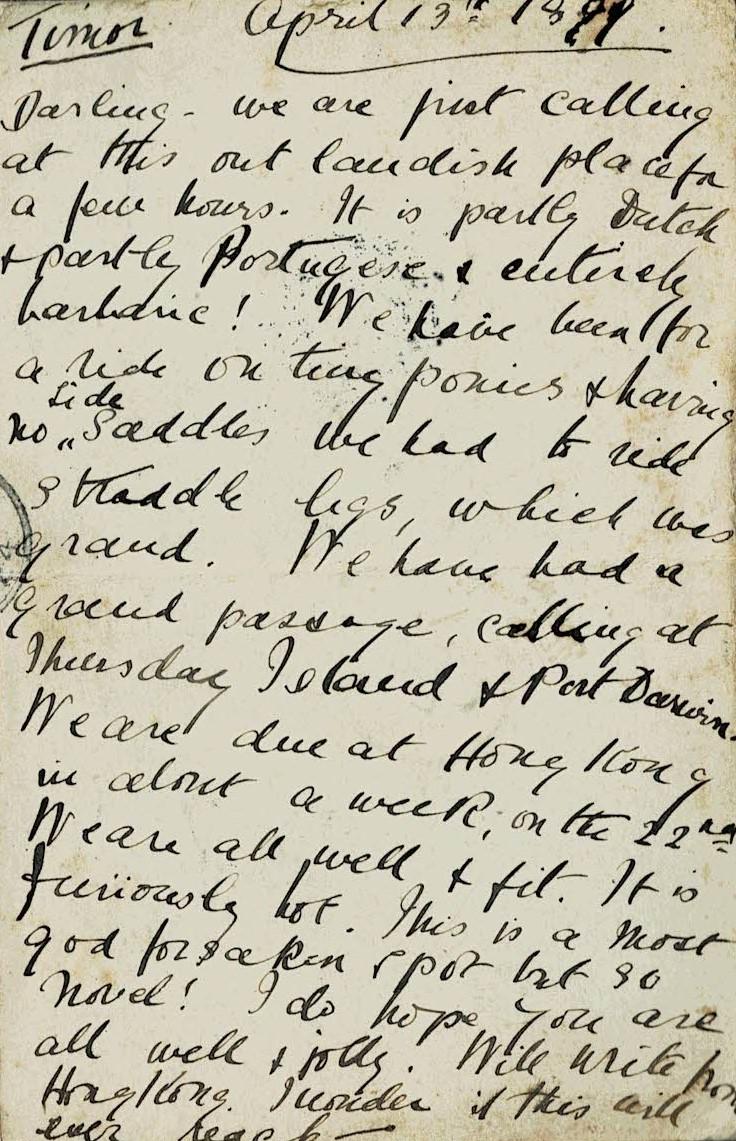 Timor April 13th
Darling - we are just calling
at this out landish place for
a few hours. It is partly Dutch
& partly Portugese & entirely
barbaric! We have been for
a ride on tiny ponies & having
no side saddles we had to ride
straddle legs, which was
grand. We have had a
grand passage, calling at
Thursday Island & Port Darwin.
We are due at Hong Kong
in about a week, on the 22nd
We are all well & fit. It is
furiously hot. This is a most
god forsaken spot but so
novel! I do hope you are
all well & jolly. Will write from
Hong Kong. I wonder if this will
ever reach